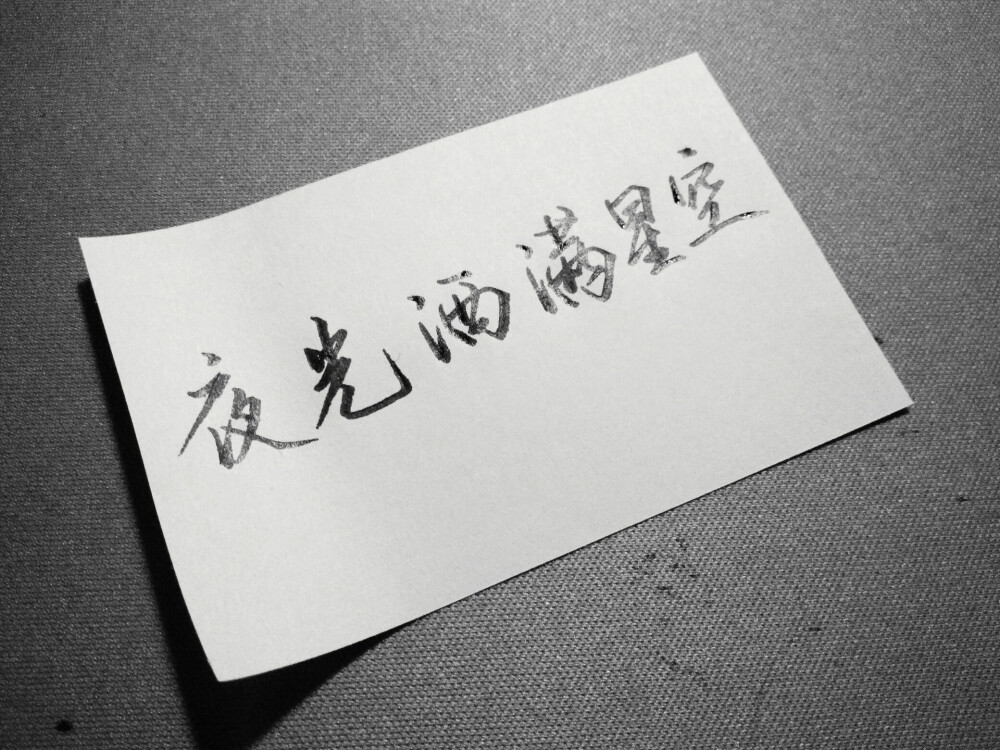 夜光洒满星空